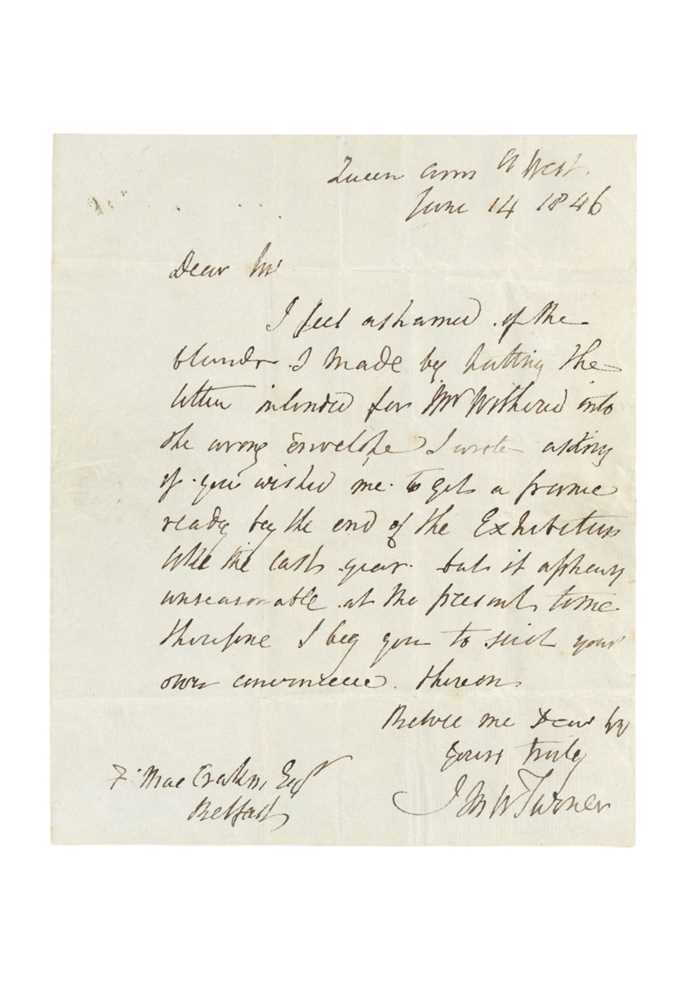 Queen Ann St West.
June 14 1846
Dear Sir
I feel ashamed of the
blunder I made by putting the
letter intended for Mr Wethered into
the wrong Envelope I wrote asking
if you wished me to get a frame
ready by the end of the Exhibition
like the last year. but it appears
unreasonable at the present time
therefore I beg you to suit your
own convenience. thereon
Believe me Dear Sir
Yours truly
J M W Turner
F. MacCraken, Esqr
Belfast